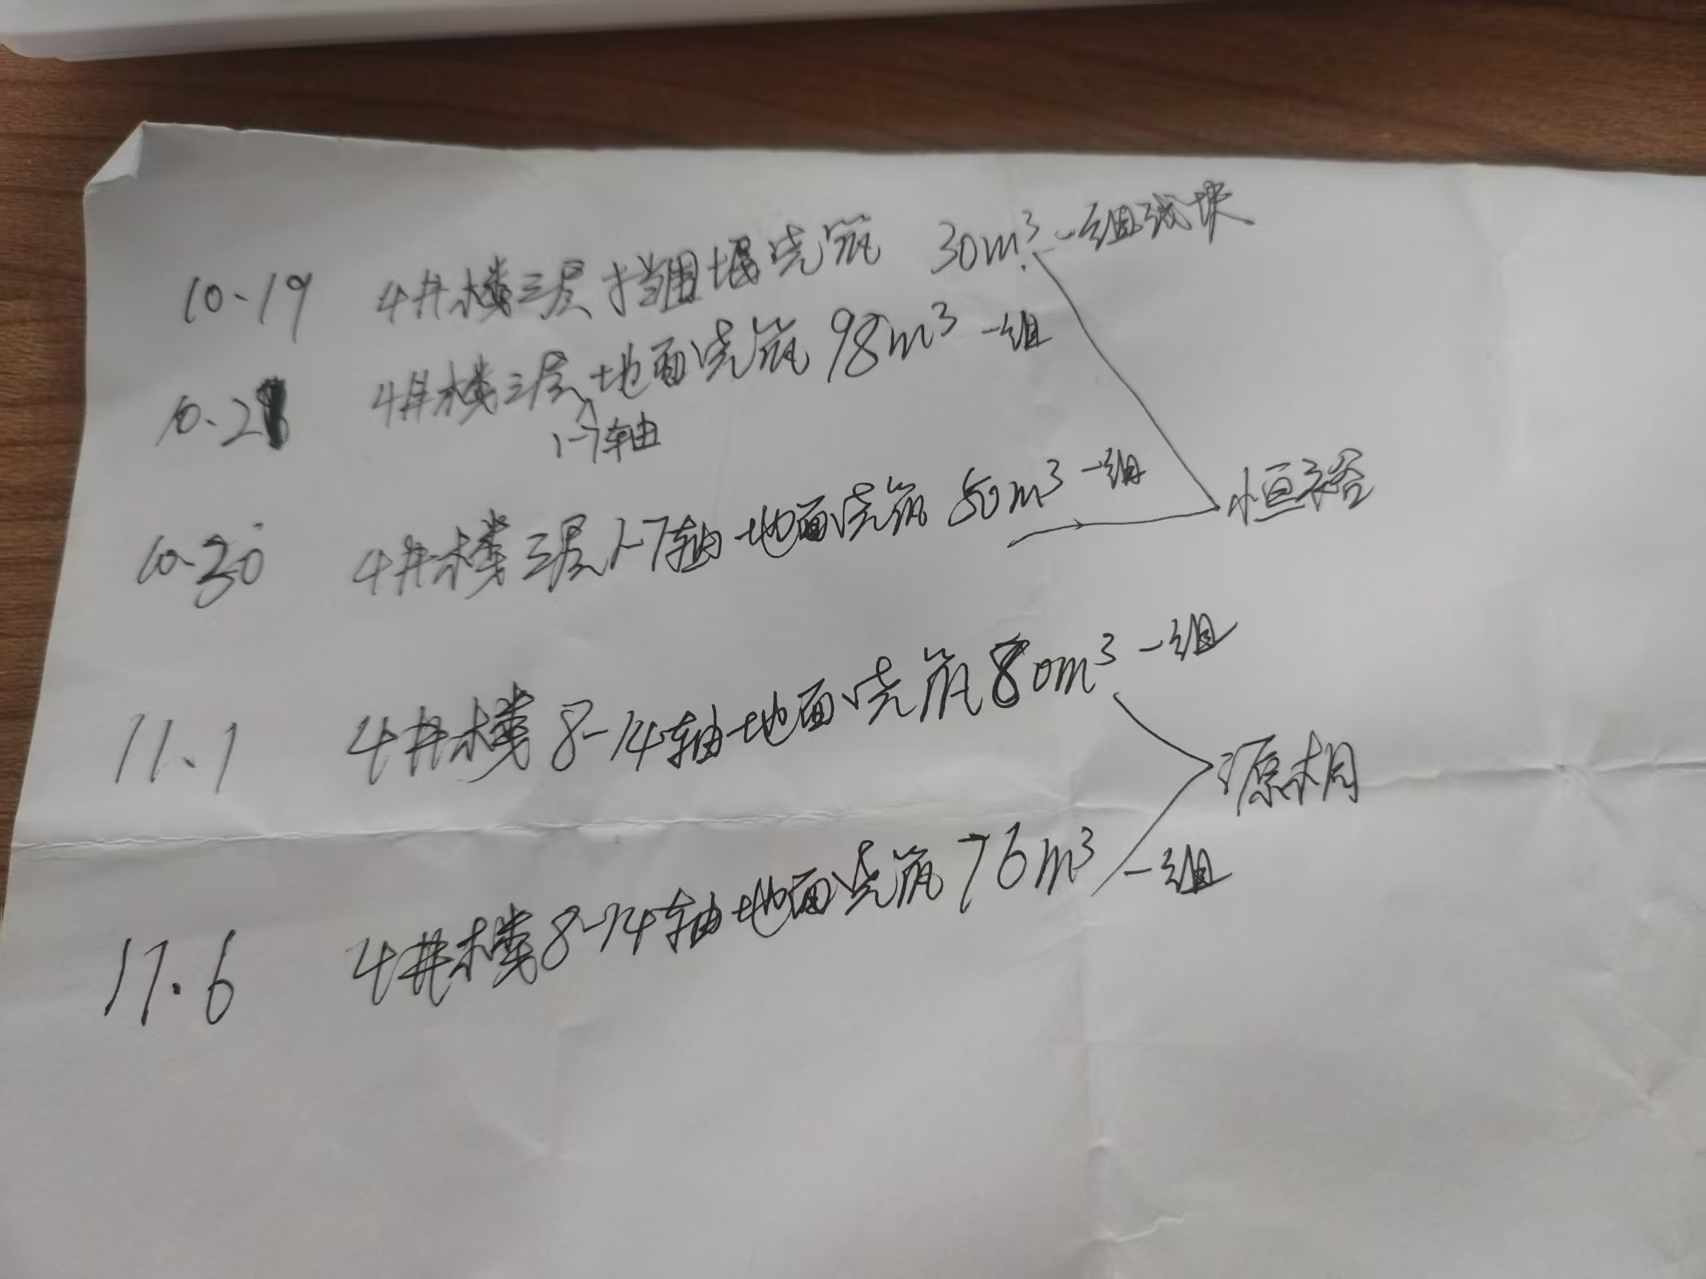 10.19 4#楼三层挡围堰浇筑 30m³ 一组试块
10.28 4#楼三层地面浇筑 98m³ 一组
1-7轴
10.30 4#楼三层1-7轴地面浇筑 50m³ 一组
恒裕
11.1 4#楼8-14轴地面浇筑80m³ 一组
源相
11.6 4#楼8-14轴地面浇筑76m³ 一组